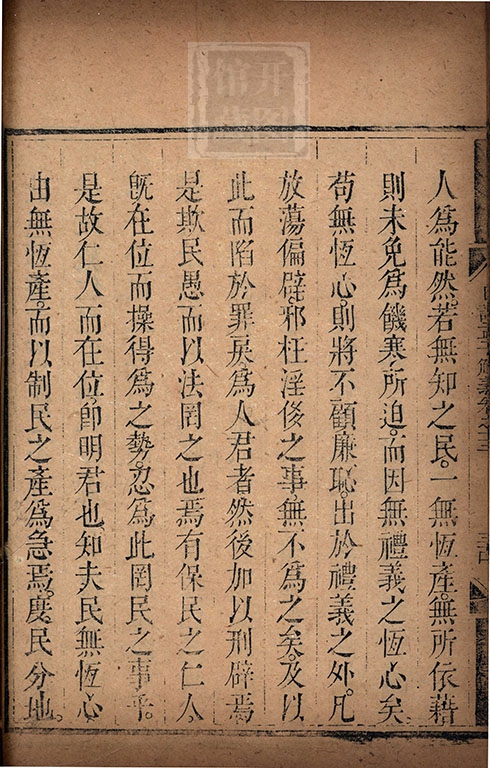 人爲能然若無知之民。一無恆產。無所依藉
則未免爲饑寒所迫。而因無禮義之恆心矣
苟無恆心。則將不顧廉恥。出於禮義之外。凡
放蕩偏辟。邪枉淫侈之事。無不爲之矣。及以
此而陷於罪戾爲人君者然後加以刑辟焉
是欺民愚而以法罔之也焉有保民之仁人。
旣在位而操得爲之勢。忍爲此罔民之事乎。
是故仁人而在位。卽明君也。知夫民無恆心
由無恆產。而以制民之產爲急焉。度民分地。